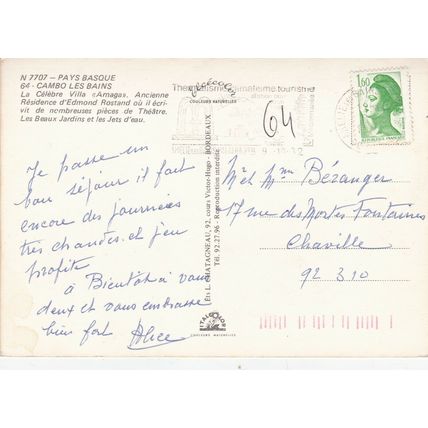 N 7707 - PAYS BASQUE
64 - CAMBO LES BAINS
La Célèbre Villa «Amaga», Ancienne
Résidence d'Edmond Rostand où il écri-
vit de nombreuses pièces de Théâtre.
Les Beaux Jardins et les Jets d'eau.
Je passe un
bon séjour il fait
encore des journées
très chaudes. et j'en
profite
à Bientôt à vous
deux et vous embrasse
bien fort Alice
COULEURS NATURELLES
Ets L. CHATAGNEAU, 92, cours Victor-Hugo - BORDEAUX
Tél. 92.27.96 - Reproduction interdite
ITALCOLOR
COULEURS NATURELLES
Thermalisme climatisme tourisme
64
1,60
REPUBLIQUE FRANÇAISE
Mr et Mme Béranger
17 rue des Mortes Fontaines
Chaville
92 310